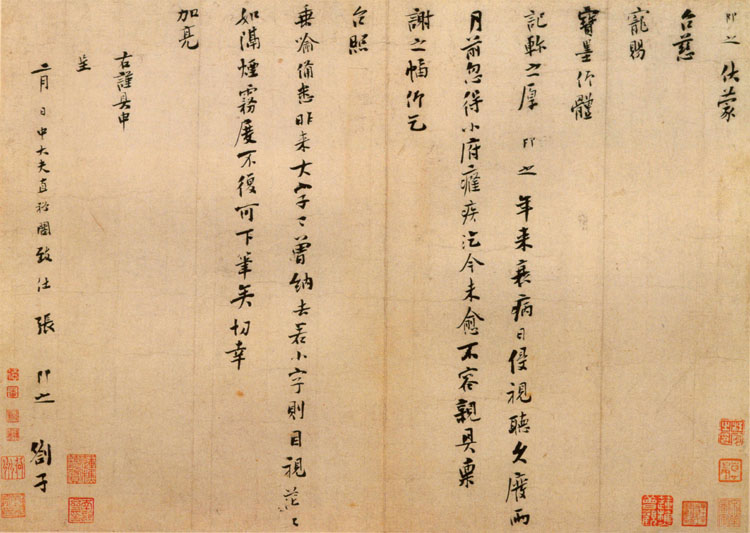 即之伏蒙
台慈
寵賜
寶墨作體
記軫之厚即之年來衰病日侵視聽久廢兩
月前忽得小府癃疾迄今未愈不容親具稟
謝之幅併乞
台照
垂喻備悉昨來大字已曾納去若小字則目視茫々
如滿煙霧度不復可下筆矣切幸
加亮
右謹具申
呈
二月 日中大夫直祕閣致仕張 即之 劄子